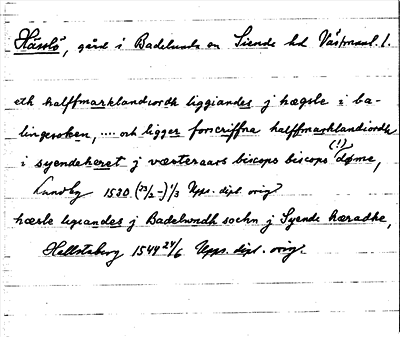 Hässlö, gård i Badelunda sn Siende hd Västmanl. l.
eth halffmarklandiordh liggiandes j hægsle i ba-
lingesoken, .... och ligger forscriffne halffmarklandiordh
i syendeheret j værsteraars biscops biscops (!) døme,
Lundby 1530 (23/2-) 1/3 Upps. dipl. orig
hæsle legiandes j Badelwndh sochn j Syende hæradhe,
Hallstaberg 1544 24/6 Upps. dipl. orig.